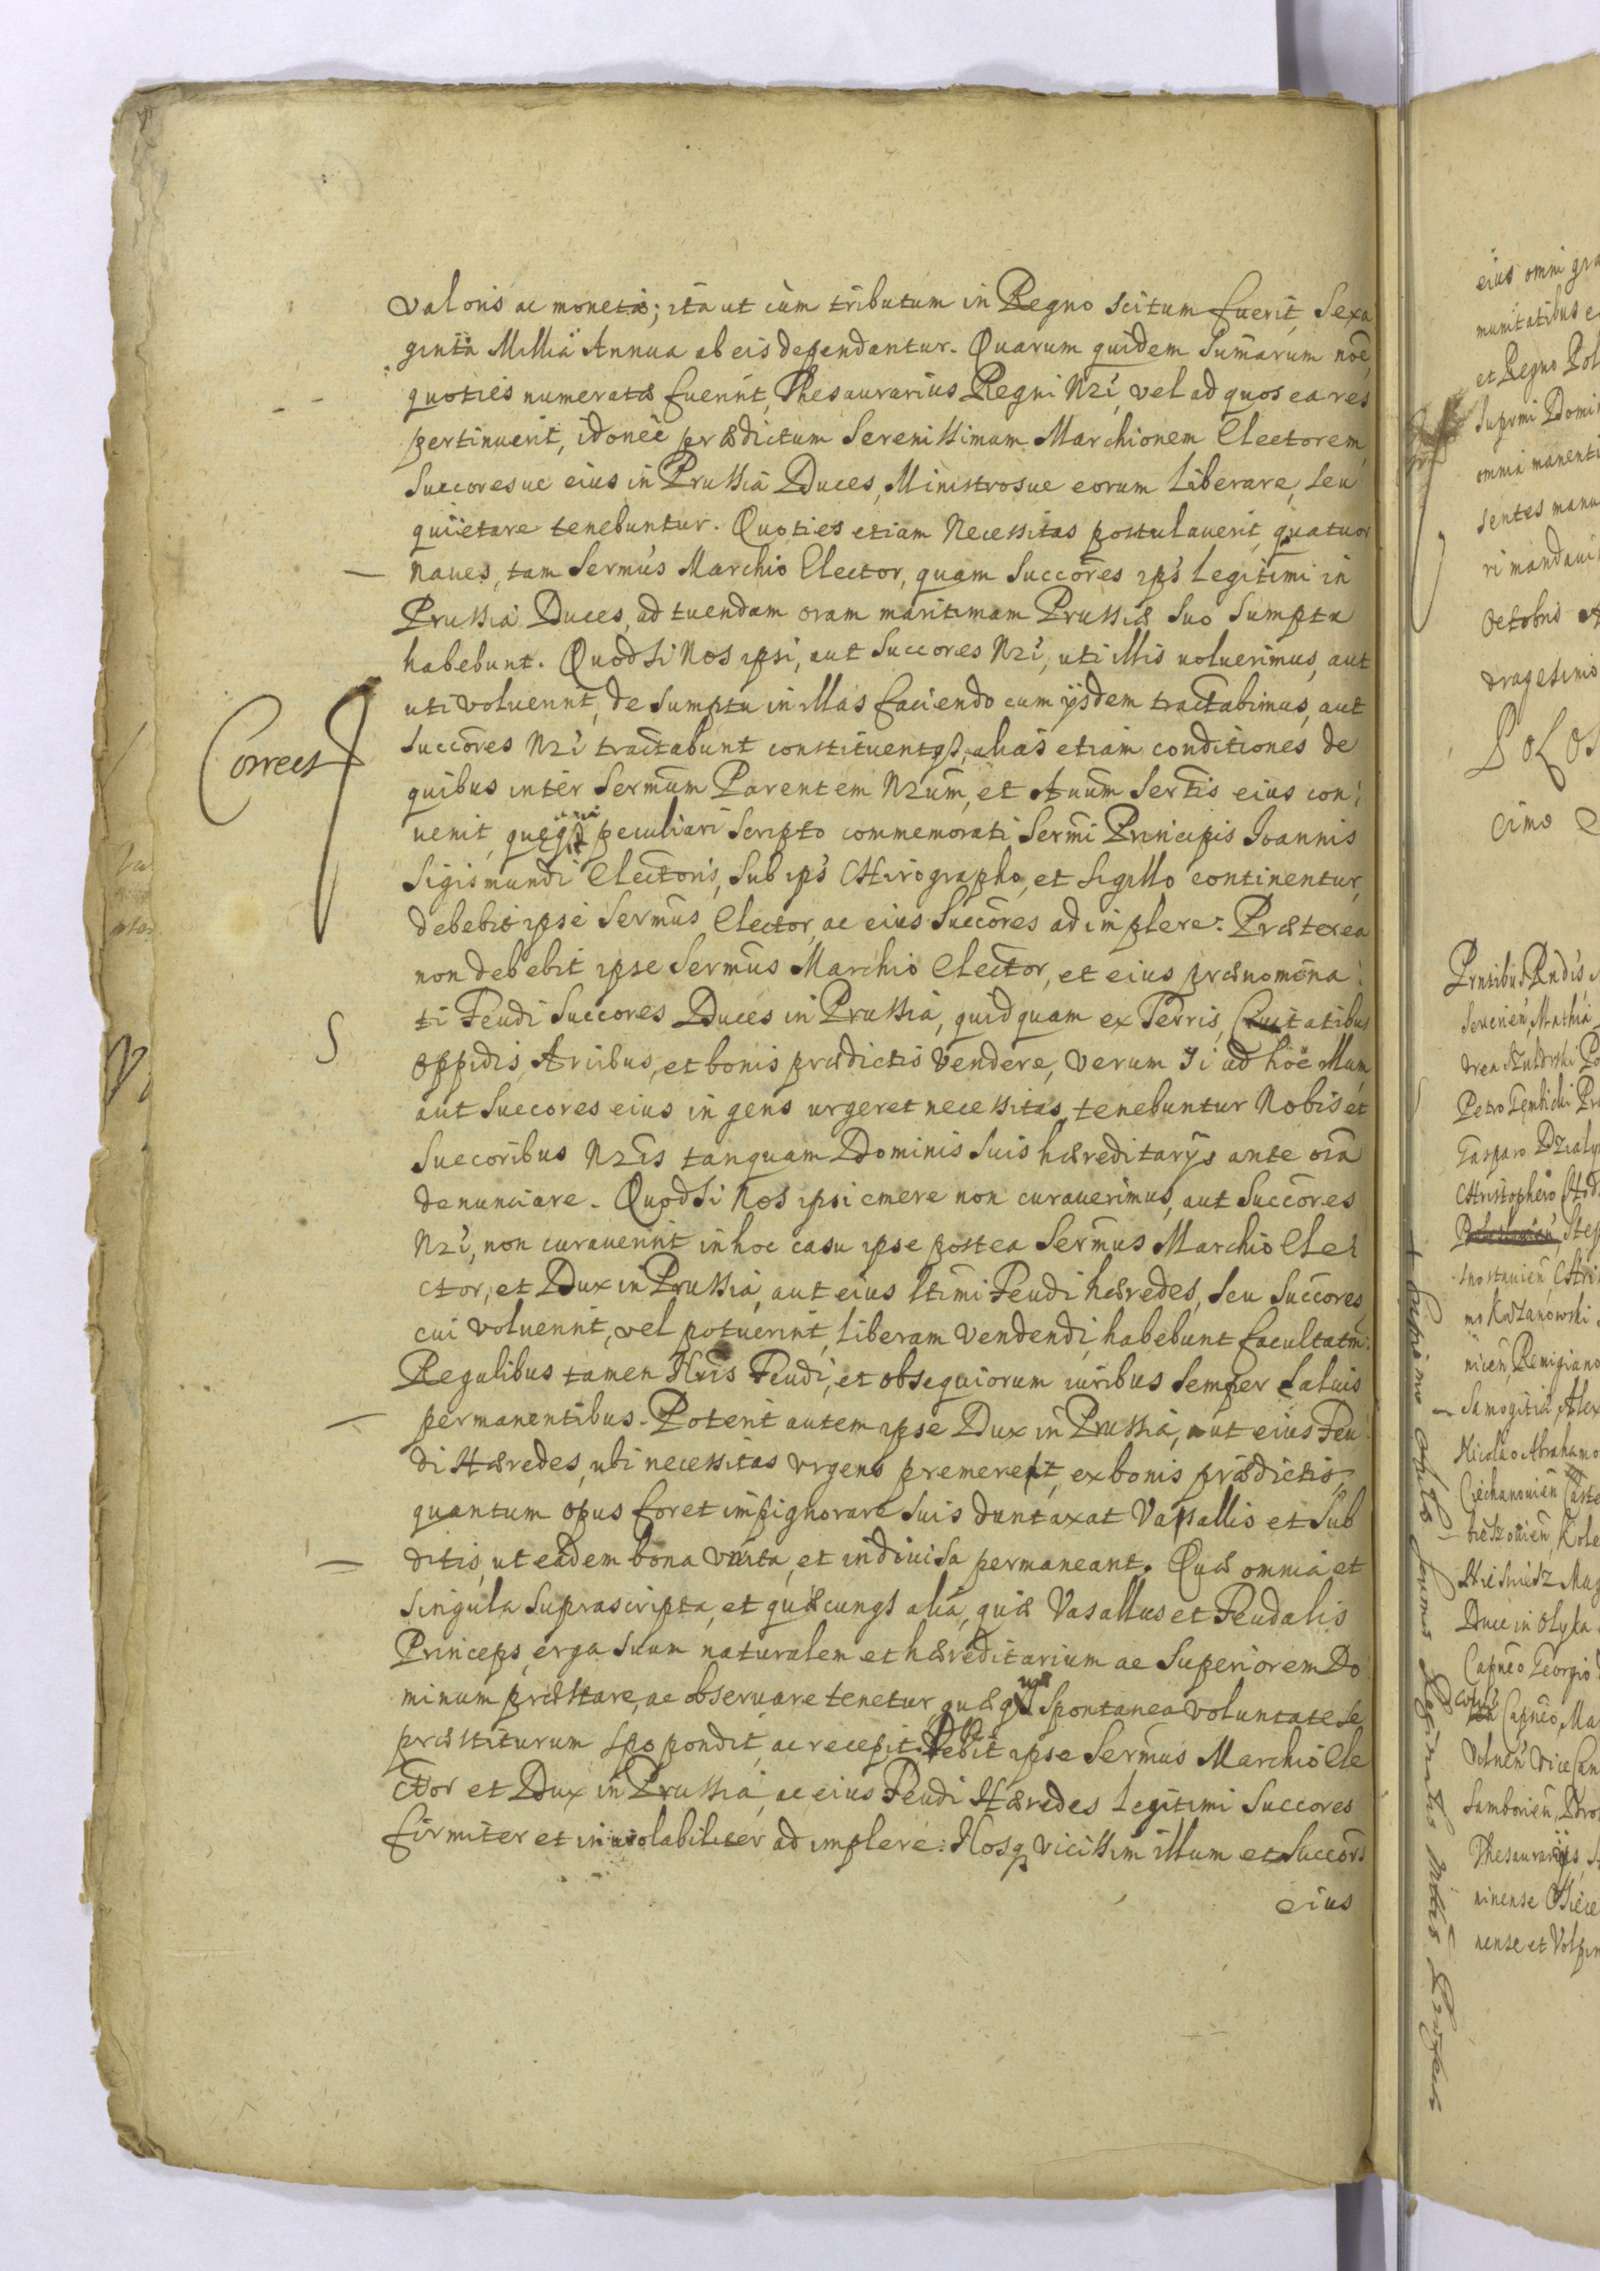 valoris ac monetæ; ita ut cum tributum in Regno scitum fuerit, Sexa
ginta Millia Annua ab eis dependantur. Quarum quidem Sumarum noe,
quoties numeratæ fuerint, Thesaurarius Regni Nri, vel ad quos ea res
pertinuerit, idonee prædictum Serenissimum Marchionem Electorem,
Succoresue eius in Prussia Duces, Ministrosue eorum liberare, seu
quietare tenebuntur. Quoties etiam Necessitas postulauerit, quatuor
naues, tam Sermus Marchio Elector, quam Succores ips legitimi in
Prussia Duces, ad tuendam oram maritimam Prussiæ suo sumptu
habebunt. Quod si Nos ipsi, aut Succores Nri, uti illis uoluerimus, aut
uti voluerint, de sumptu in illas faciendo cum ijsdem tractabimus, aut
Succores Nri tractabunt constituentq3, alias etiam conditiones de
Correct
quibus inter Sermum Parentem Nrum, et Auum Sertis eius con:
uenit, quęq3 peculiari Scripto commemorati Sermi Principis Joannis
Sigismundi Electoris, Sub ips CHirographo, et Sigillo continentur,
debebit ipse Sermus Elector, ac eius Succores adimplere. Præterea
non debebit ipse Sermus Marchio Elector, et eius prænomina:
ti Feudi Succores Duces in Prussia, quidquam ex Terris, Ciuitatibus
S
oppidis, Arcibus, et bonis prædictis vendere, verum si ad hoc illum,
aut Succores eius ingens urgeret necessitas, tenebuntur Nobis et
Succoribus Nris tanquam Dominis suis hæreditarijs ante oia
denunciare. Quod si Nos ipsi emere non curauerimus, aut Succores
Nri, non curauerint in hoc casu ipse postea Sermus Marchio Ele:
ctor, et Dux in Prussia, aut eius ltimi Feudi hæredes, seu Succores,
cui voluerint, vel potuerint, liberam vendendi, habebunt facultatm:
Regalibus tamen Nris Feudi, et obsequiorum iuribus semper saluis
permanentibus. Poterit autem ipse Dux in Prussia, aut eius Feu
di Hæredes, ubi necessitas vrgens premeret, ex bonis prædictis,
quantum opus foret impignorare suis duntaxat Vasallis et Sub
ditis, ut eadem bona vnita, et indiuisa permaneant. Quæ omnia et
singula suprascripta, et quæcunq3 alia, quæ Vasallus et Feudalis
Princeps, erga suum naturalem et hæreditarium ac Superiorem Do
minum præstare, ac obseruare tenetur, quæq3 spontanea voluntate se
præstiturum spopondit, ac recepit. Debebit ipse Sermus Marchio Ele
ctor et Dux in Prussia, ac eius Feudi Hæredes legitimi Succores
firmiter et inuiolabiliter adimplere: Nosq3 vicissim illum et Succors
eius
eius omni gra
munitatibus e
et Regno Pol
Suprmi Domi
omnia manenti
sentes manu
ri mandaui
Octobris A
dragesimo
cimo
Prntibus Rndis,
Petro Gembicki Pr
CHristophero
Samogitiæ, Alex
Nicolao Abrahamo
Duce in Olyka
Capneo Georgio
Capneo, Ma
Vice Can
nense et Volpin